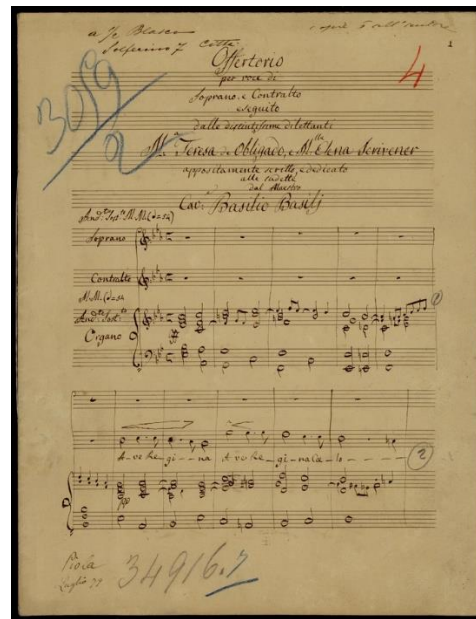 Solferino 7 Città
1
4
3019
2
Offertorio
per voce di
Soprano e Contralto
eseguito
dalle distintissime dilettanti
Teresa de Obligado, e Elena Scrivener
appositamente scritto, e dedicato
alle sudette
dal Maestro
Cav. Basilio Basilj
Soprano
Contralto
M.M. (♩=54
Organo
A-ve Re-gi-na A-ve Re-gi-na Cæ-lo
2
Luglio 77
34916.7